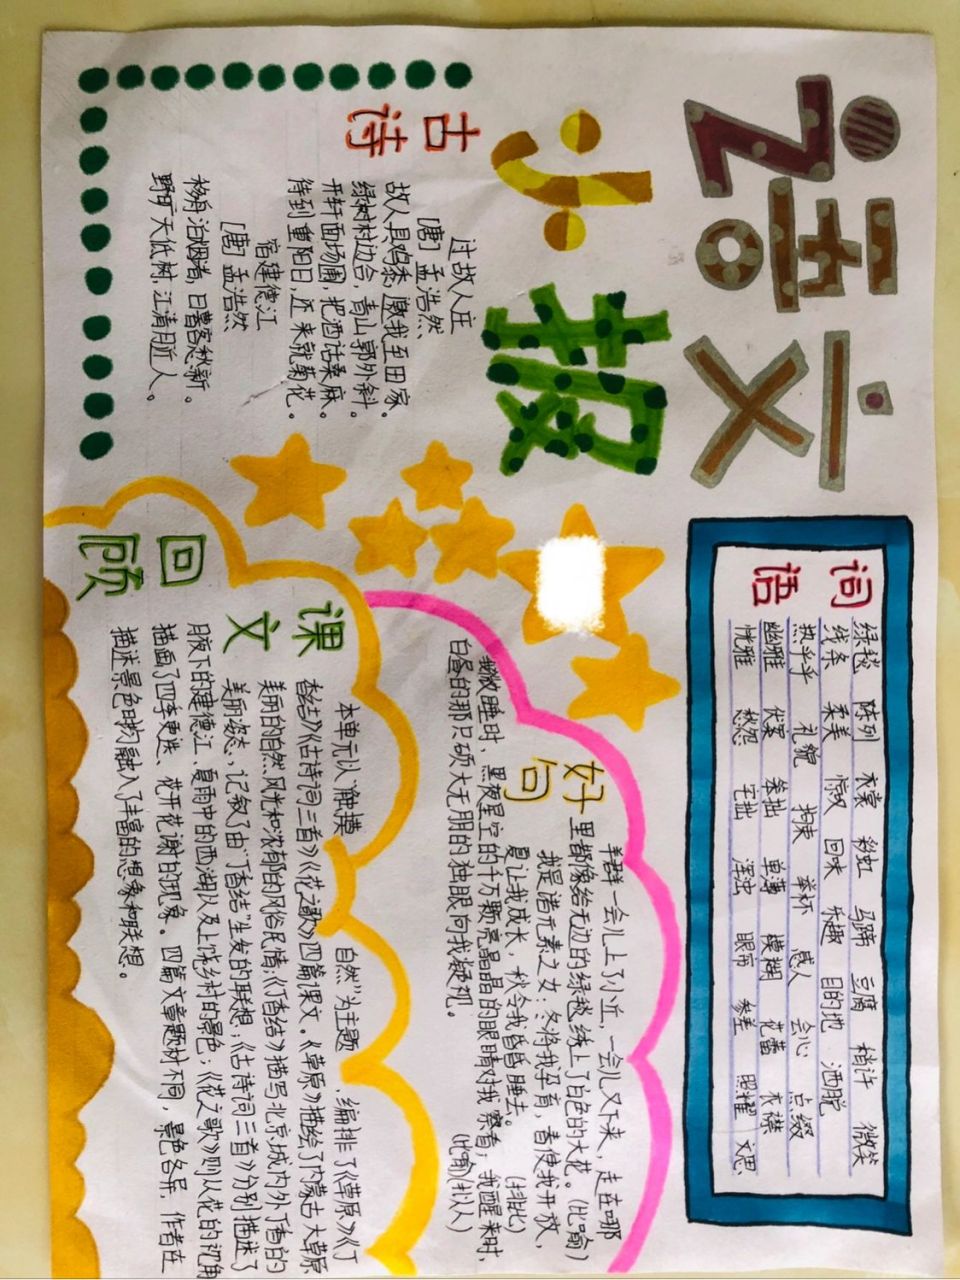 语文
小报
古诗
过故人庄
[唐] 孟浩然
故人具鸡黍，邀我至田家。
绿树村边合，青山郭外斜。
开轩面场圃，把酒话桑麻。
待到重阳日，还来就菊花。
宿建德江
[唐] 孟浩然
移舟泊烟渚，日暮客愁新。
野旷天低树，江清月近人。
词语
绿毯 陈列 衣裳 彩虹 马蹄 豆腐 稍许 微笑
线条 柔美 惊叹 回味 乐趣 目的地 洒脱
热乎乎 礼貌 拘束 举杯 感人 会心 点缀
幽雅 伏案 笨拙 单薄 模糊 花蕾 衣襟
恍惟 愁怨 宅拙 浑浊 眼帘 参差 照耀 文思
好句
羊群一会儿上了小丘，一会儿又下来，走在哪
里都像给无边的绿毯绣上了白色的大花。(比喻)
我是诸元素之女：冬将我孕育，春使我开放，
夏让我成长，秋令我昏昏睡去。 (排比)
微睡时，黑夜星空的千万颗亮晶晶的眼睛对我察看；我醒来时，
白昼的那只硕大无朋的独眼向我凝视。 (比喻)(拟人)
课文
回顾
本单元以“触摸自然”为主题，编排了《草原》《丁
香结》《古诗词三首》《花之歌》四篇课文。《草原》描绘了内蒙古大草原
美丽的自然风光和浓郁的风俗民情；《丁香结》描写北京城内外丁香的
美丽姿态，记叙了由“丁香结”生发的联想；《古诗词三首》分别描述了
月夜下的建德江、夏雨中的西湖以及上饶乡村的景色；《花之歌》则从花的视角
描画了四季更迭、花开花谢的现象。四篇文章题材不同，景色各异，作者在
描述景色时，融入了丰富的想象和联想。